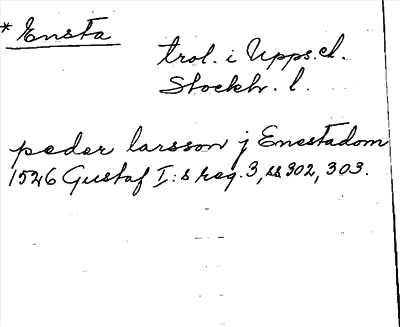 * Ensta
trol. i Upps. el.
Stockh. l.
peder larsson j Enestadom
1526 Gustaf I:s reg. 3, ss 302, 303.